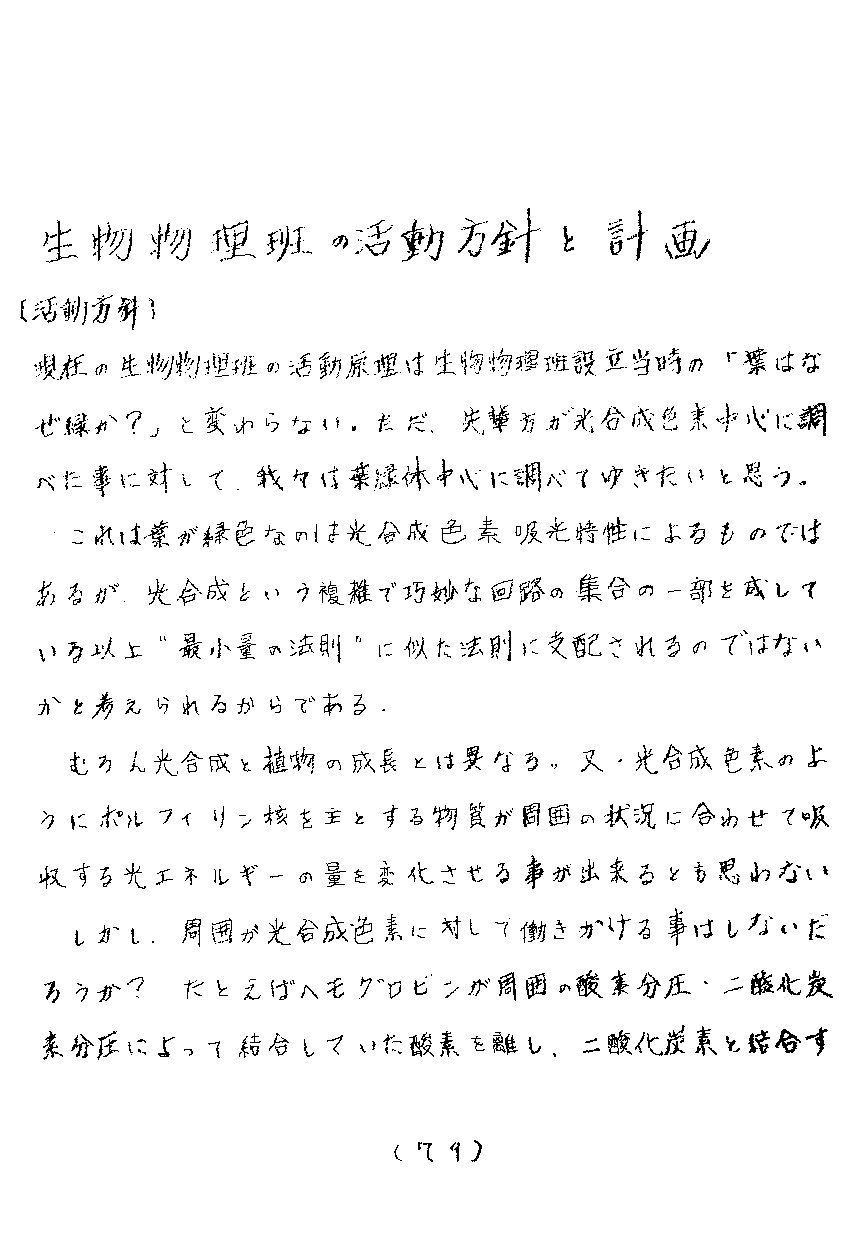 生物物理班の活動方針と計画
〔活動方針〕
現在の生物物理班の活動原理は生物物理班設立当時の「葉はな
ぜ緑か？」と変わらない。ただ、先輩方が光合成色素中心に調
べた事に対して、我々は葉緑体中心に調べてゆきたいと思う。
これは葉が緑色なのは光合成色素吸光特性によるものでは
あるが、光合成という複雑で巧妙な回路の集合の一部を成して
いる以上“最小量の法則”に似た法則に支配されるのではない
かと考えられるからである。
むろん光合成と植物の成長とは異なる。又、光合成色素のよ
うにポルフィリン核を主とする物質が周囲の状況に合わせて吸
収する光エネルギーの量を変化させる事が出来るとも思わない
しかし、周囲が光合成色素に対して働きかける事はしないだ
ろうか？ たとえばヘモグロビンが周囲の酸素分圧・二酸化炭
素分圧によって結合していた酸素を離し、二酸化炭素と結合す
(79)